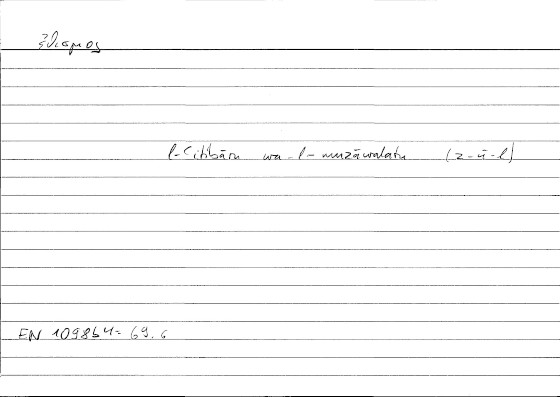 ἐθισμος
l-ʿitibāru wa-l-muzāwalatu (z-ū-l)
EN 1098b4= 69.6